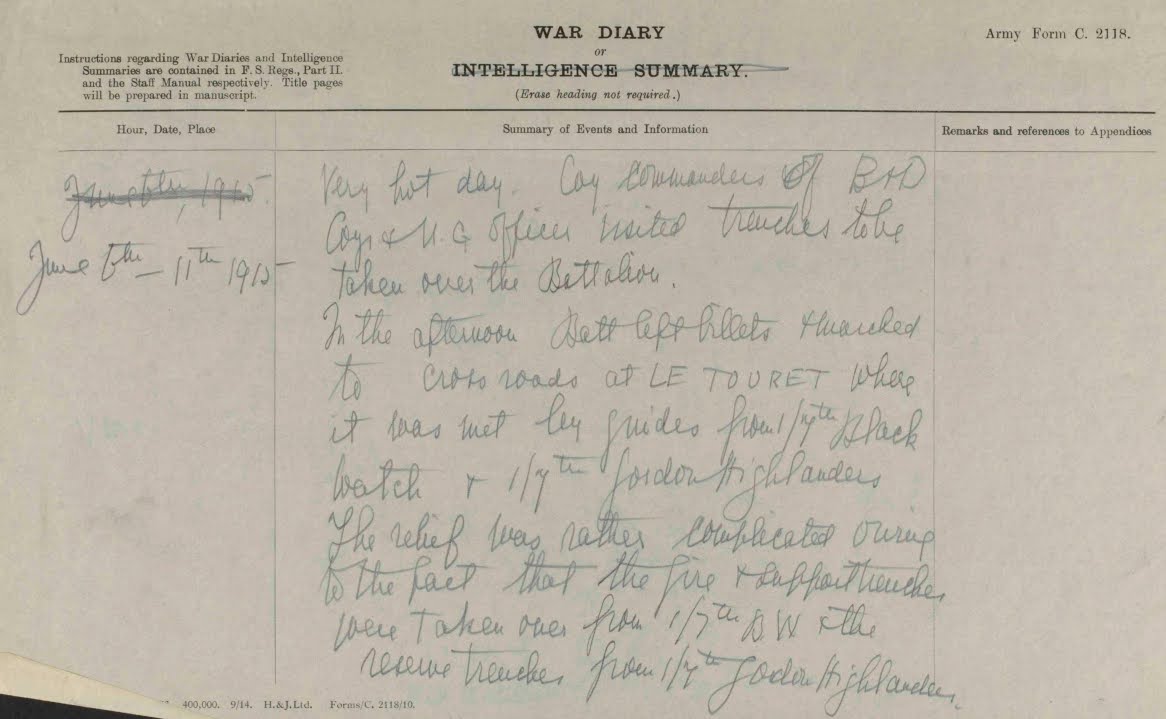 WAR DIARY
or
INTELLIGENCE SUMMARY.
(Erase heading not required.)
Army Form C. 2118.
Instructions regarding War Diaries and Intelligence
Summaries are contained in F. S. Regs., Part II.
and the Staff Manual respectively. Title pages
will be prepared in manuscript.
Hour, Date, Place
Summary of Events and Information
Remarks and references to Appendices
June 6th, 1915.
June 6th – 11th 1915
Very hot day. Coy Commanders of B & D
Coys & M. G officer visited trenches to be
taken over the Battalion.
In the afternoon Batt left billets & marched
to cross roads at LE TOURET where
it was met by guides from 1/7th Black
Watch & 1/7th Gordon Highlanders
The relief was rather complicated owing
to the fact that the fire & support trenches
were taken over from 1/7th B W & the
reserve trenches from 1/7th Gordon Highlanders.
400,000. 9/14. H.&J.Ltd. Forms/C. 2118/10.